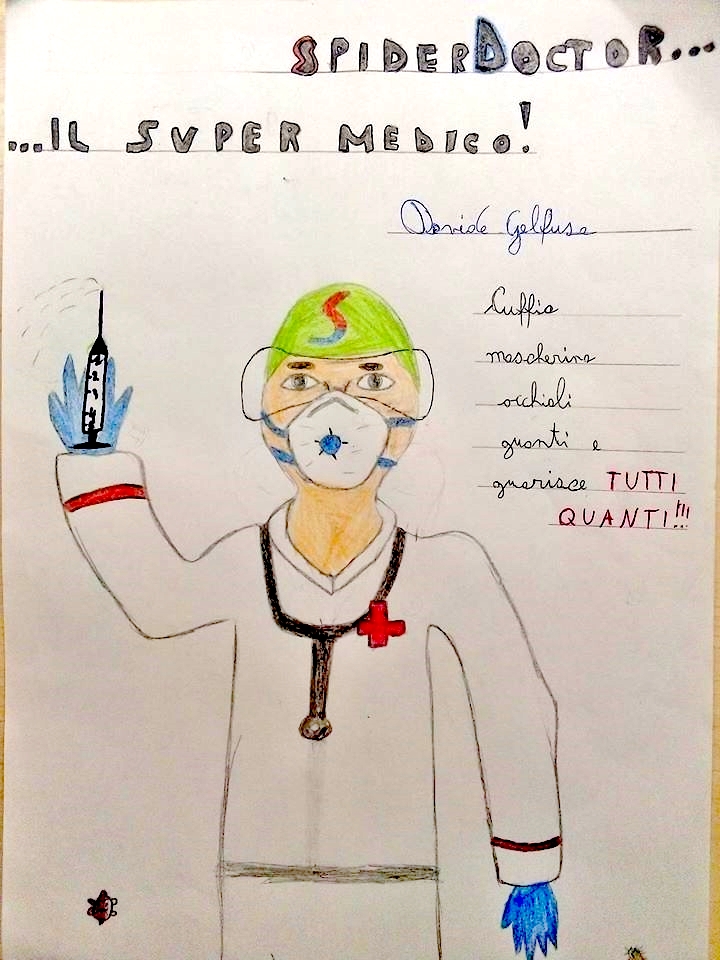 SPIDERDOCTOR...
...IL SUPER MEDICO!
Davide Gelfusa
Cuffia
mascherina
occhiali
guanti e
guarisce TUTTI
QUANTI!!!
S